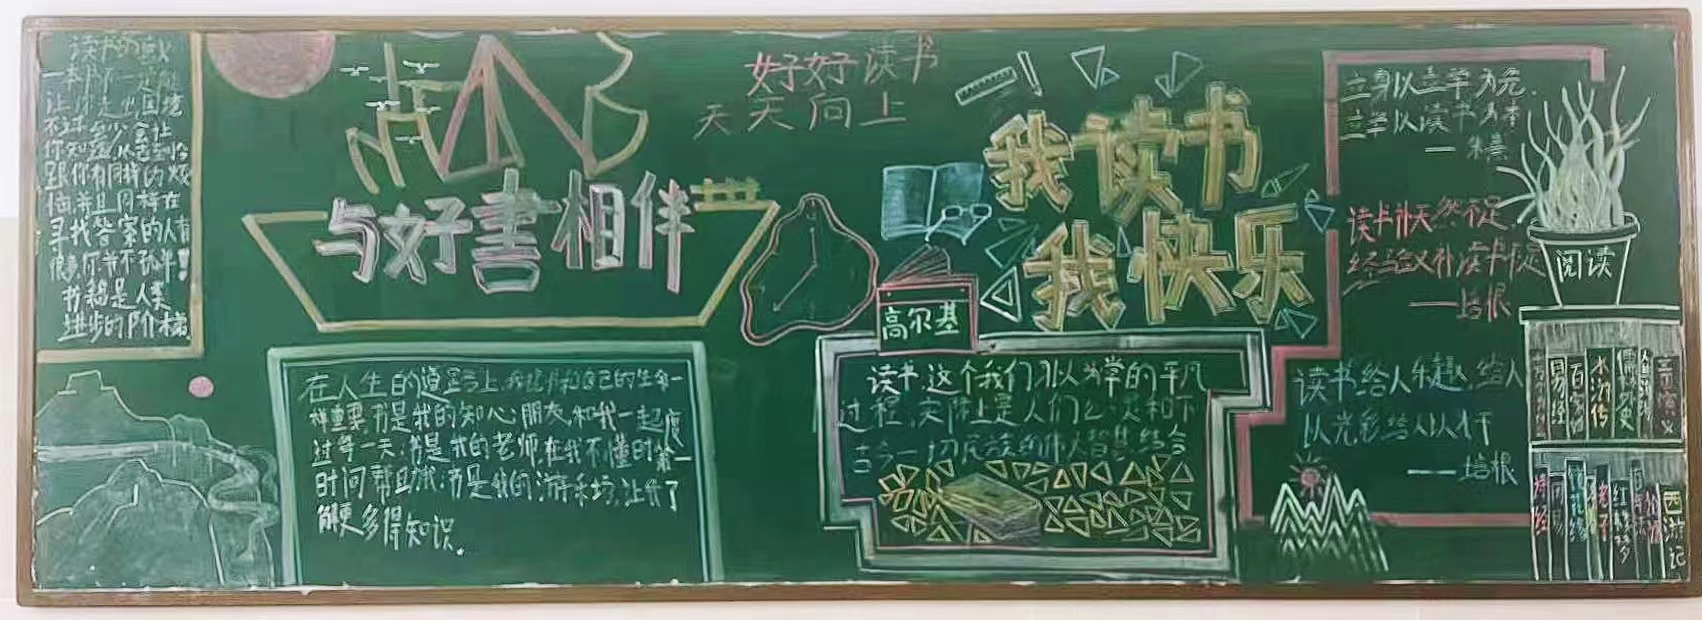 读书
一本书不一定能
不过至少会让
你知道
跟你有同样的烦
恼并且同样在
寻找答案的人有
很多你并不孤单!!!
书籍是人类
进步的阶梯
与好書相伴
好好读书
天天向上
在人生的道路上,我把书和自己的生命一
样重要,书是我的知心朋友,和我一起度
过每一天;书是我的老师,在我不懂时第一
时间帮助我;书是我的游乐场,让我了
解更多得知识。
我读书
我快乐
高尔基
读书,这个我们习以为常的平凡
过程,实际上是人们心灵和下
古今一切民族的伟人智慧结合
立身以立学为先,
立学以读书为本
读书补天然不足
经验又补读书不足
——培根
读书给人乐趣,给人
以光彩给人以才干
——培根
阅读
易经
百家姓
水浒传
儒林外史
三国演义
诗经
老子
红楼梦
西游记